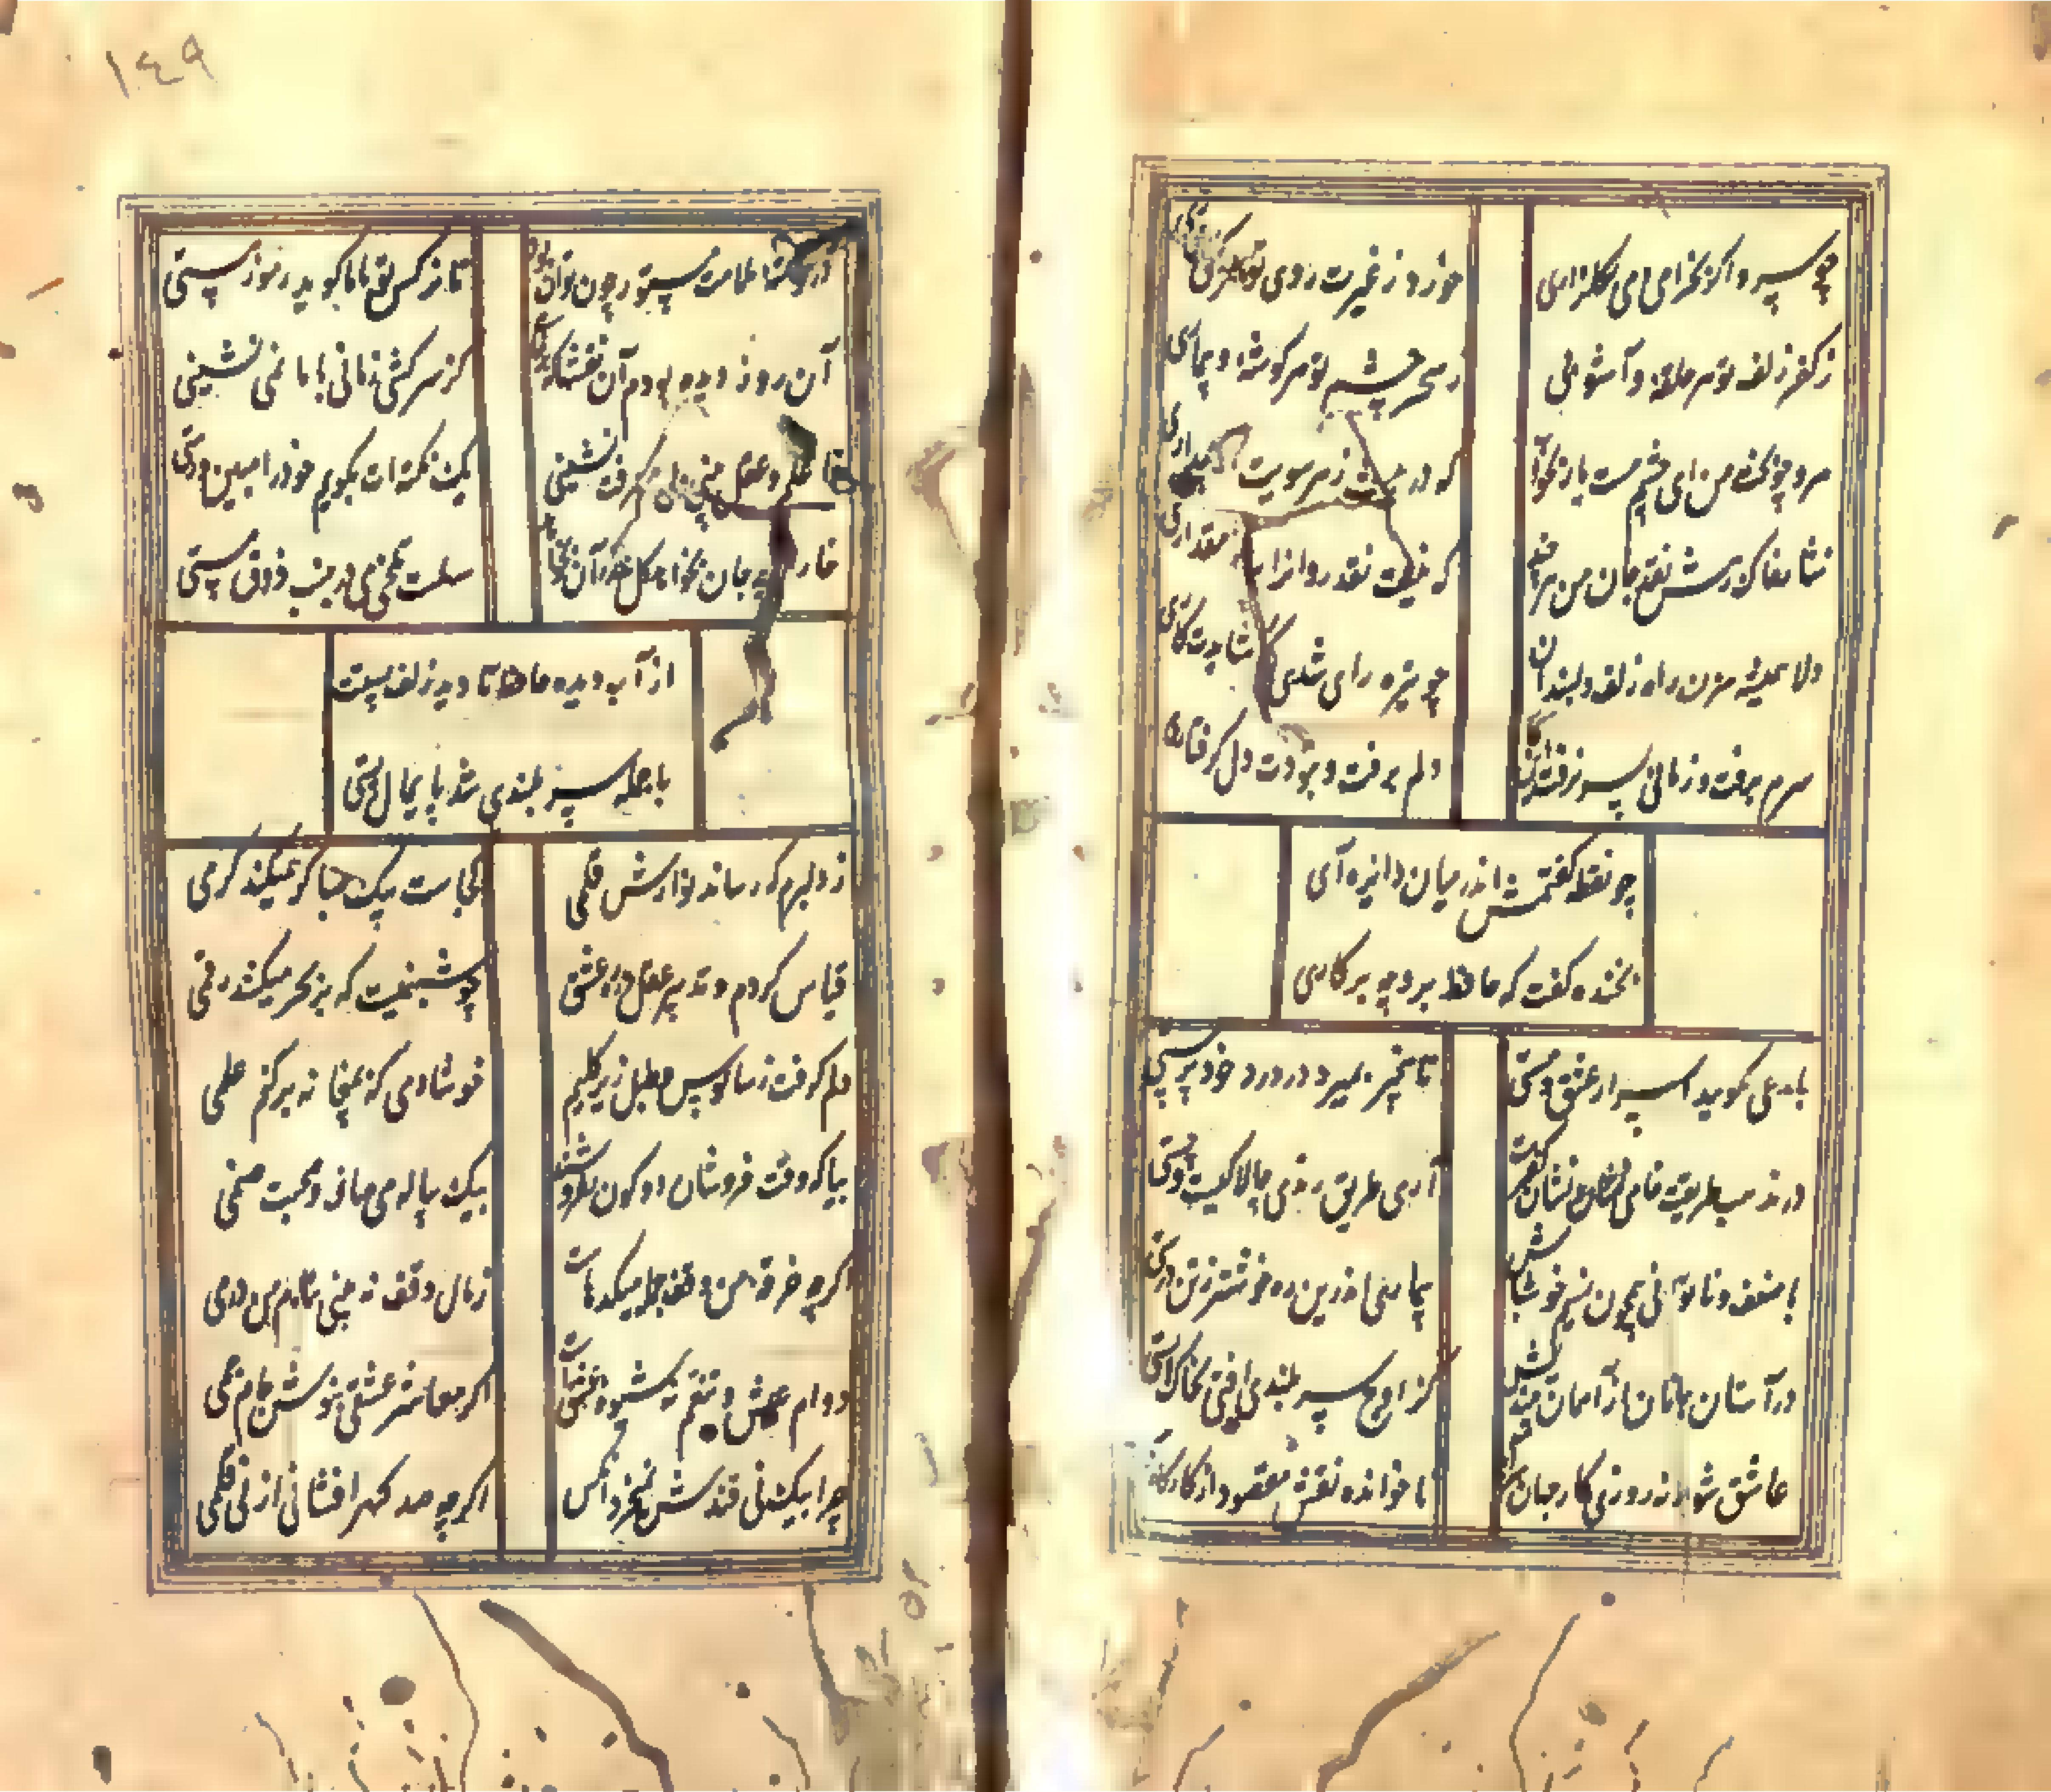 چو سرو اگر بخرامی دمی بگلزاری
خورد ز غیرت روی تو هر گلی خاری
ز کفر زلف تو هر حلقهٔ و آشوبی
ز سحر چشم تو هر گوشهٔ و بیماری
مرو چو بخت من ای چشم مست یار بخواب
که در پیست ز هر سویت آه بیداری
نثار خاک رهش نقد جان من هرچند
که نیست نقد روانرا بر تو مقداری
دلا همیشه مزن راه زلف دلبندان
چو تیره رای شدی کی گشایدت کاری
سرم برفت و زمانی بسر نرفت این کار
دلم گرفت و نبودت دل گرفتاری
چو نقطه گفتمش اندر میان دایره آی
بخنده گفت که حافظ برو چه پرکاری
با مدعی مگویید اسرار عشق و مستی
تا بیخبر بمیرد در درد خود پرستی
در مذهب طریقت خامی نشان کفرست
آری طریق رندی چالاکیست و چستی
با ضعف و ناتوانی همچون نسیم خوش باش
بیماری اندرین ره خوشتر ز تن درستی
در آستان جانان از آسمان میندیش
کز اوج سر بلندی افتی بخاک پستی
عاشق شو ار نه روزی کار جهان سر آید
ناخوانده نقش مقصود از کارگاه
۱۴۹
در گوشهٔ سلامت مستور چون توان بود
تا نرگس تو با ما گوید رموز مستی
آن روز دیده بودم آن فتنها که برخاست
کز سرکشی زمانی با ما نمی نشینی
علم و عقل نشینی
یک نکته ات بگویم خود را مبین و رستی
خار ار چه جان بکاهد گل عذر آن بخواهد
سهلست تلخی می در جنب ذوق مستی
از آب دیده حافظ تا دید زلف پستت
با جمله سر بلندی شد پایمال پستی
ز دلبرم که رساند نوازش قلمی
کجاست پیک صبا گر همیکند کرمی
قیاس کردم و تدبیر عقل در ره عشق
چو شبنمیست که بر بحر میکشد رقمی
دلم گرفت ز سالوس و طبل زیر گلیم
خوشا دمی که بمیخانه بر کنم علمی
بیا که وقت فروشان دو کون بفروشند
بیک پیاله می صاف و صحبت صنمی
اگر چه خرقه من وقف میکدهاست
ز مال وقف نه بینی بنام من درمی
دوام عیش و تنعم نه شیوه عشقست
اگر معاشر عشقی بنوش جام غمی
چرا بیک نی قندش نمیخرد آنکس
اگر چه صد گهر افشانی از نی قلمی